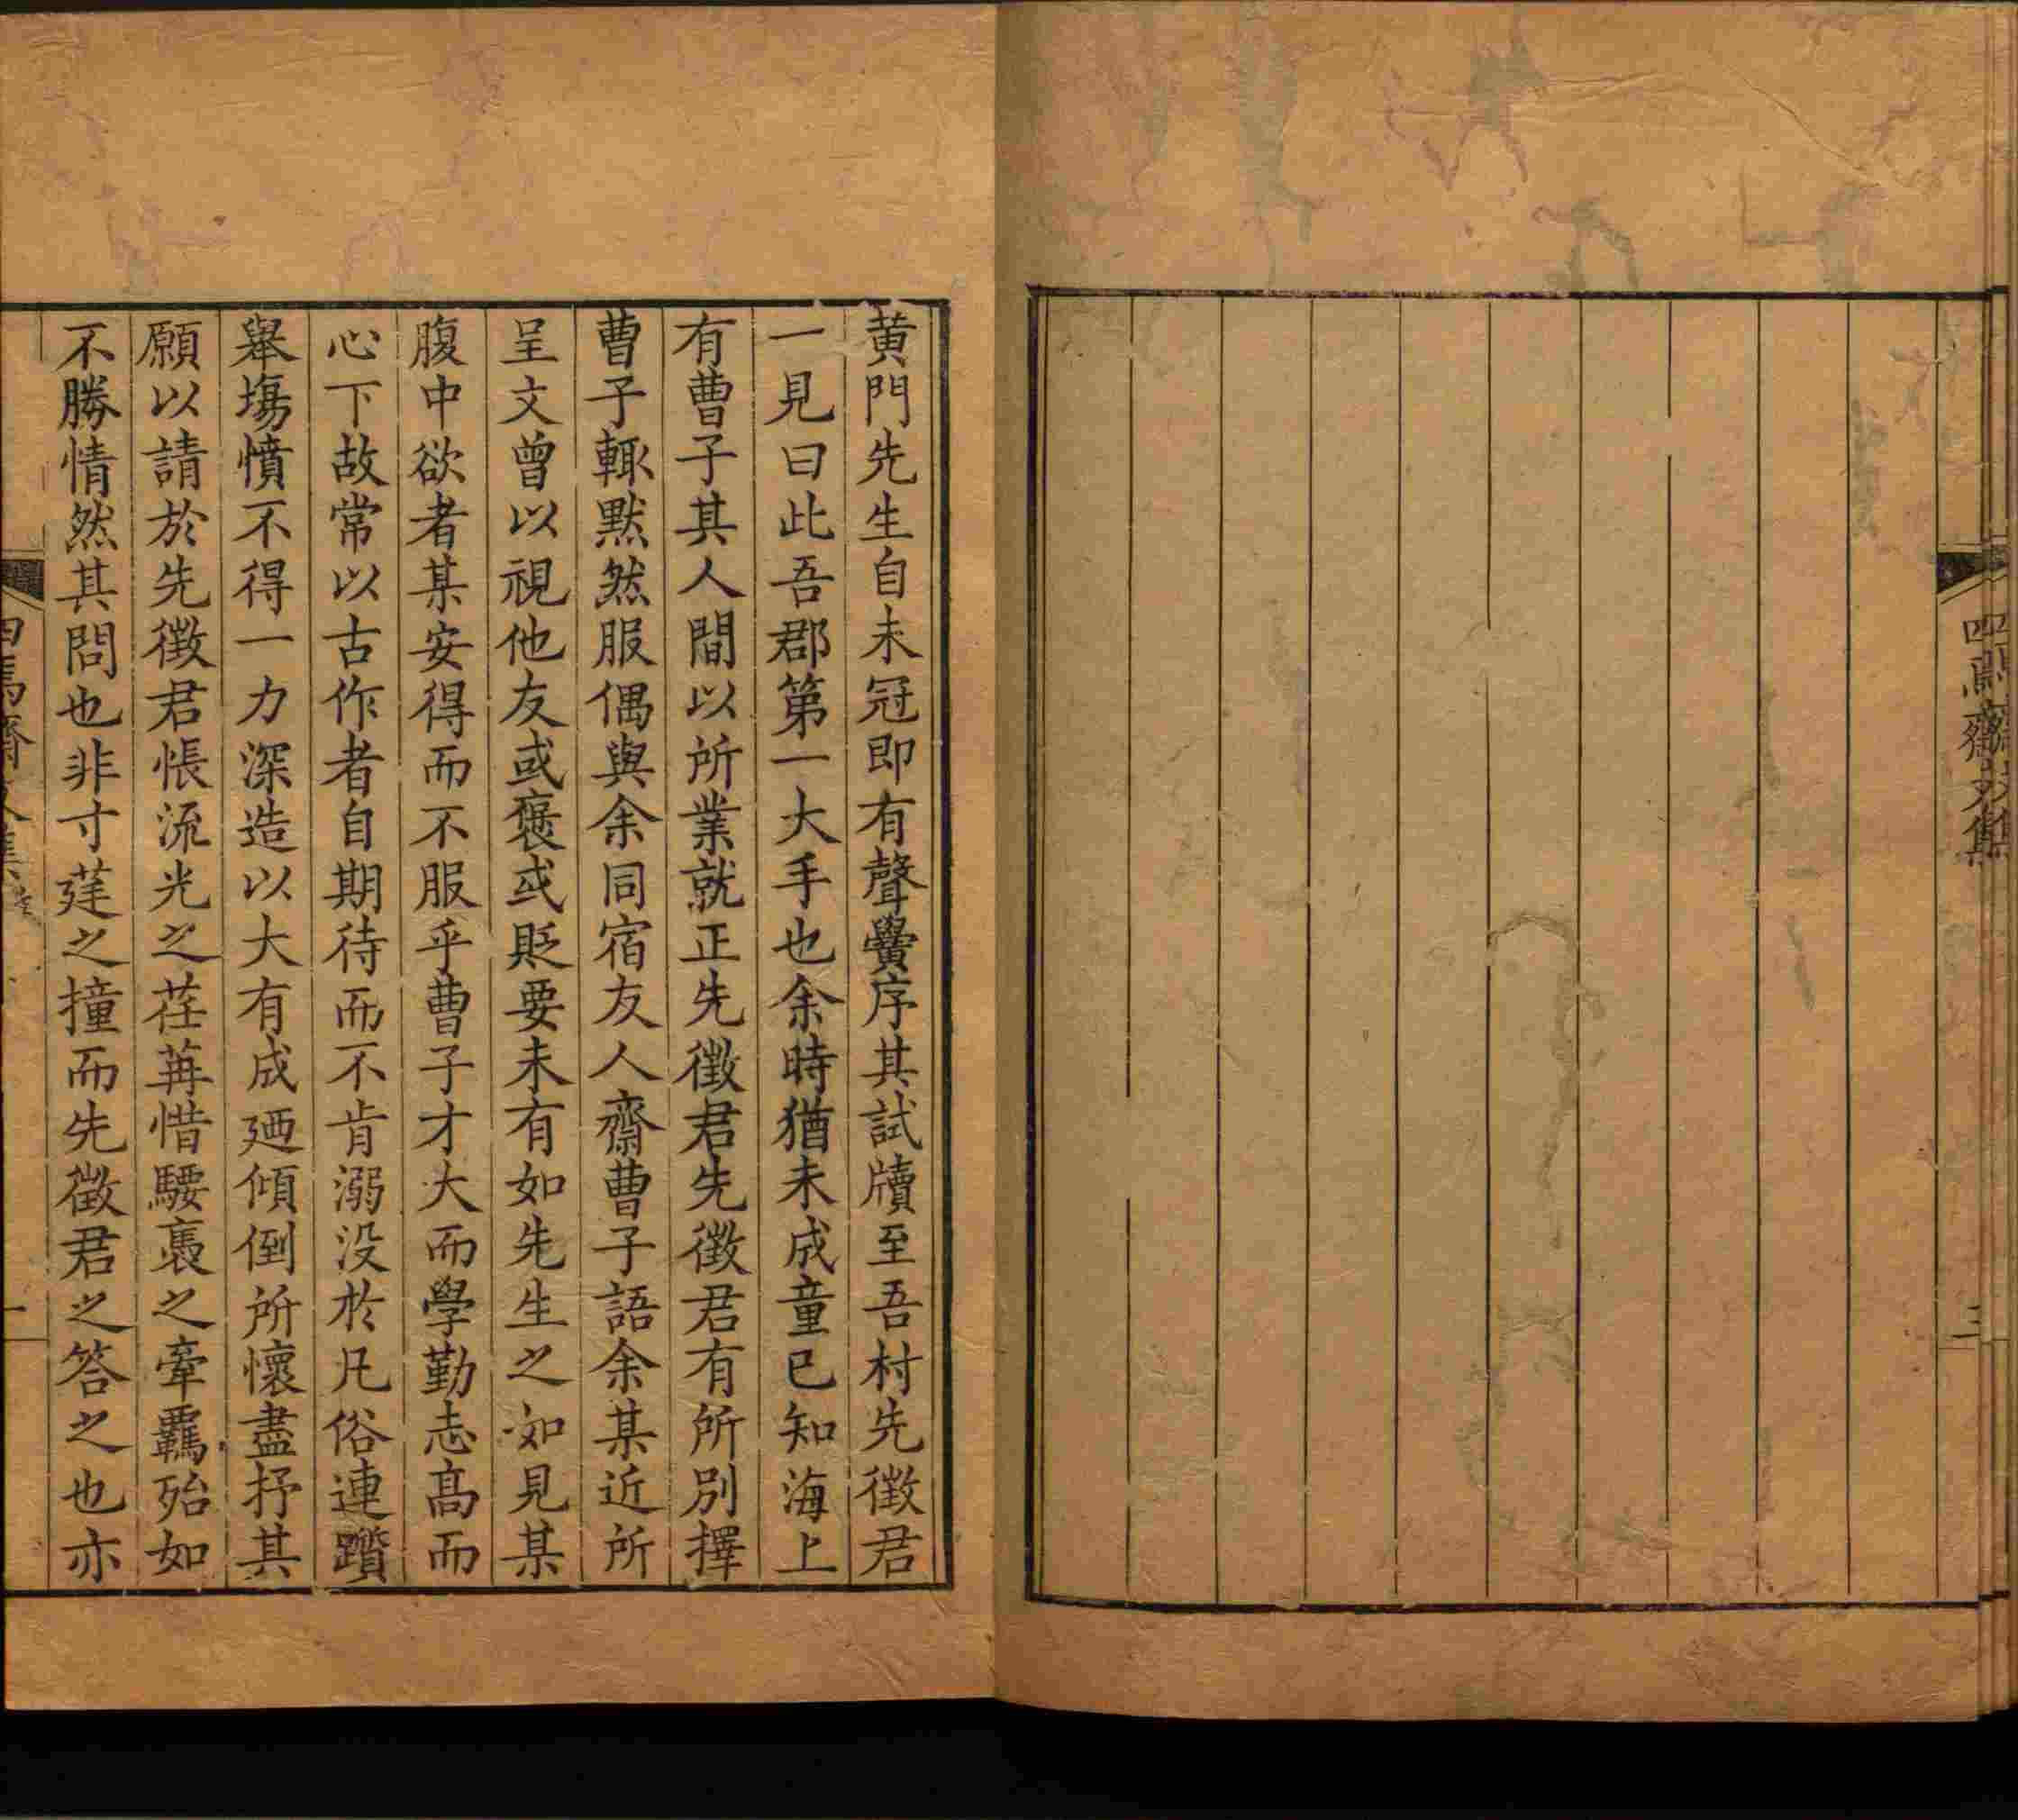 四焉齋文集
三
黄門先生自未冠即有聲黌序其試牘至吾村先徵君
一見曰此吾郡第一大手也余時猶未成童已知海上
有曹子其人間以所業就正先徵君先徵君有所別擇
曹子輒黙然服偶與余同宿友人齋曹子語余某近所
呈文曾以視他友或襃或貶要未有如先生之如見某
腹中欲者某安得而不服乎曹子才大而學勤志高而
心下故常以古作者自期待而不肯溺没於凡俗連躓
舉塲憤不得一力深造以大有成廼傾倒所懷盡抒其
願以請於先徵君悵流光之荏苒惜騕褭之牽覊殆如
不勝情然其問也非寸莛之撞而先徵君之答之也亦